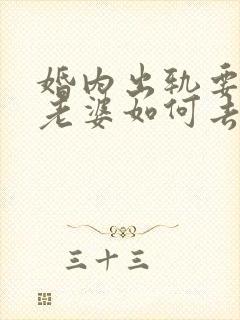 婚内出轨要
老婆如何去
三十三